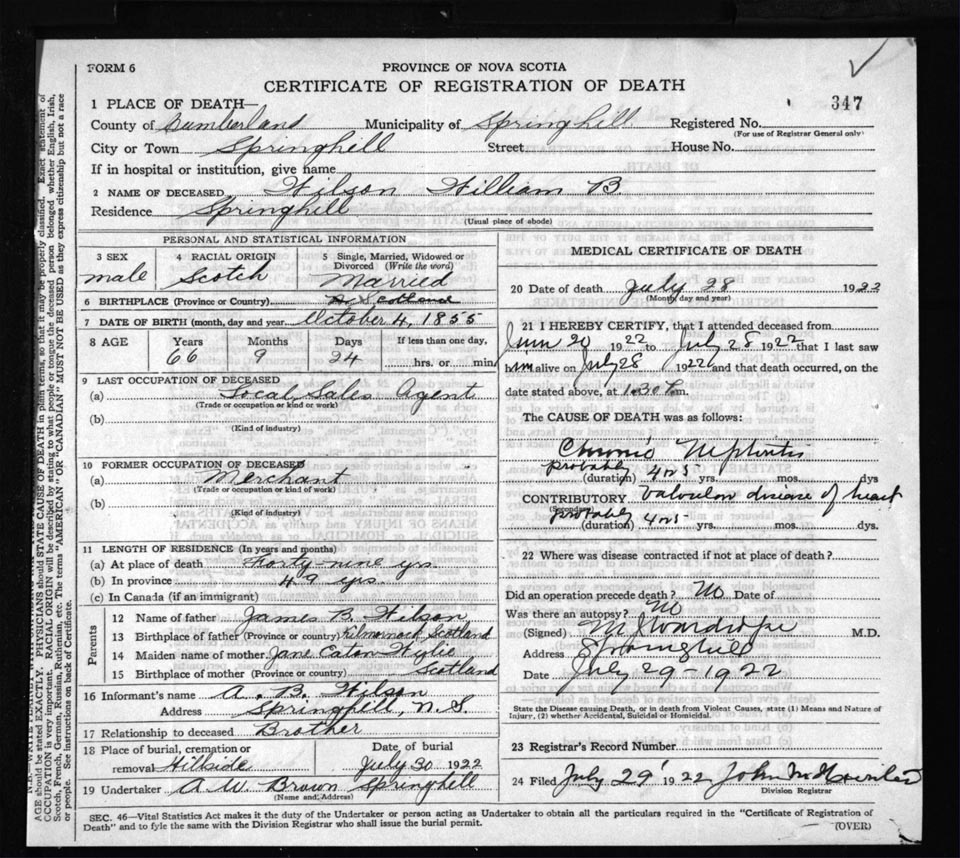 FORM 6
PROVINCE OF NOVA SCOTIA
CERTIFICATE OF REGISTRATION OF DEATH
347
1 PLACE OF DEATH—
County of Cumberland Municipality of Springhill Registered No.
(For use of Registrar General only)
City or Town Springhill Street House No.
If in hospital or institution, give name
2 NAME OF DECEASED Wilson William B
Residence Springhill
(Usual place of abode)
PERSONAL AND STATISTICAL INFORMATION
3 SEX male
4 RACIAL ORIGIN Scotch
5 Single, Married, Widowed or Divorced (Write the word) Married
6 BIRTHPLACE (Province or Country) Scotland
7 DATE OF BIRTH (month, day and year) October 4, 1855
8 AGE Years Months Days If less than one day,
66 9 24 hrs. or min.
9 LAST OCCUPATION OF DECEASED
(a) Local Sales Agent
(Trade or occupation or kind or work)
(b)
(Kind of industry)
10 FORMER OCCUPATION OF DECEASED
(a) Merchant
(Trade or occupation or kind or work)
(b)
(Kind of industry)
11 LENGTH OF RESIDENCE (In years and months)
(a) At place of death Forty-nine yrs.
(b) In province 49 yrs.
(c) In Canada (if an immigrant)
Parents
12 Name of father James B. Wilson
13 Birthplace of father (Province or country) Kilmarnock Scotland
14 Maiden name of mother Jane Caton Wylie
15 Birthplace of mother (Province or country) Scotland
16 Informant's name A. B. Wilson
Address Springhill, N.S
17 Relationship to deceased Brother
18 Place of burial, cremation or removal Hillside
Date of burial July 30 1922
19 Undertaker A. W. Brown Springhill
(Name and Address)
MEDICAL CERTIFICATE OF DEATH
20 Date of death July 28 1922
(Month day and year)
21 I HEREBY CERTIFY, that I attended deceased from
June 20 1922 to July 28 1922 that I last saw
him alive on July 28 1922 and that death occurred, on the
date stated above, at 1.30 P.m.
The CAUSE OF DEATH was as follows:
Chronic Nephritis
probably (duration) 4 or 5 yrs. mos. dys
CONTRIBUTORY valvular disease of heart
(Secondary)
probably (duration) 4 or 5 yrs. mos. dys.
22 Where was disease contracted if not at place of death?
Did an operation precede death? No Date of
Was there an autopsy? No
(Signed) M.D.
Address Springhill
Date July 29-1922
State the Disease causing Death, or in death from Violent Causes, state (1) Means and Nature of
Injury, (2) whether Accidental, Suicidal or Homicidal.
23 Registrar's Record Number
24 Filed July 29 1922 John
Division Registrar
SEC. 46—Vital Statistics Act makes it the duty of the Undertaker or person acting as Undertaker to obtain all the particulars required in the "Certificate of Registration of
Death" and to fyle the same with the Division Registrar who shall issue the burial permit.
(OVER)
AGE should be stated EXACTLY. PHYSICIANS should STATE CAUSE OF DEATH in plain terms, so that it may be properly classified. Exact statement of
OCCUPATION is very important. RACIAL ORIGIN will be described by stating to what people or tongue the deceased person belonged whether English, Irish,
Scotch, French, German, Russian, Ruthenian, etc. The terms "AMERICAN" OR "CANADIAN" MUST NOT BE USED as they express citizenship but not a race
or people. See instructions on back of Certificate.